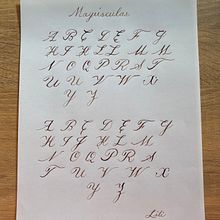 Mayúsculas
A B C D E F G
H I J H L L M M
N O Q P R S T
U U V V W X
Y Z
A B C D E F G
H I J H L M
N O Q P R S
T U V V W X
Y Z
Lili